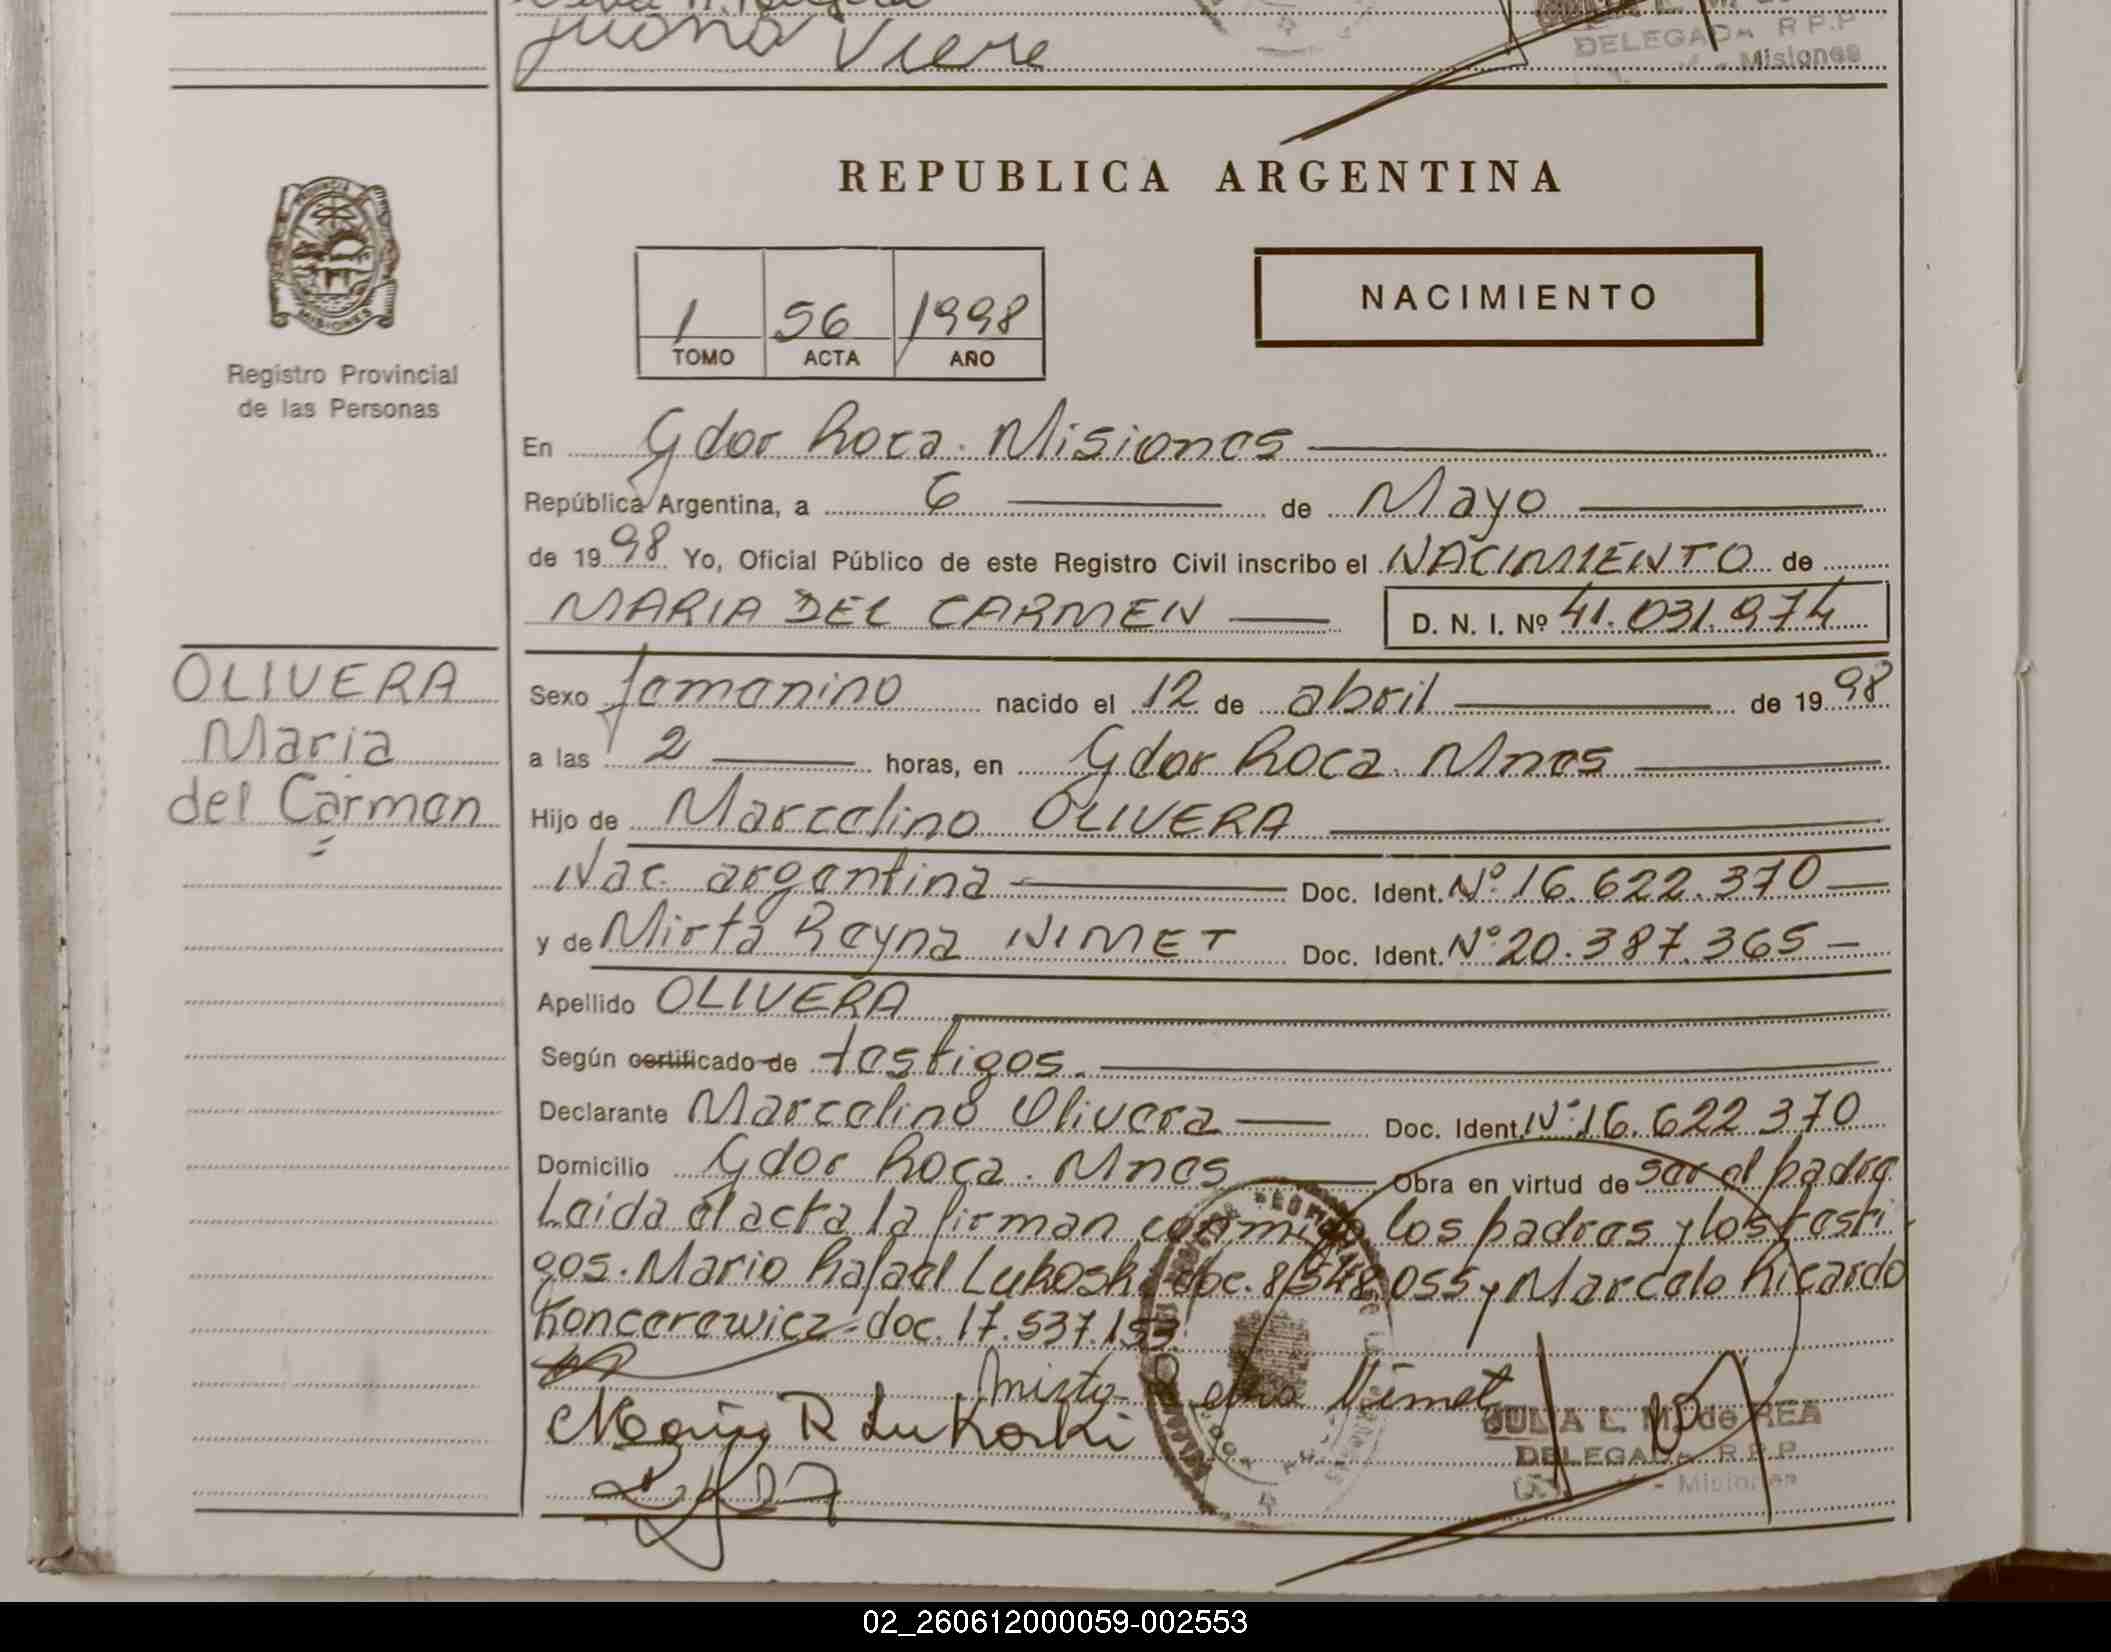 Juana Viere
DELEGADA R.P.P
- Misiones
REPUBLICA ARGENTINA
PROVINCIA
MISIONES
Registro Provincial
de las Personas
1 56 1998
TOMO ACTA AÑO
NACIMIENTO
En Gdor Roca. Misiones
República Argentina, a 6 de Mayo
de 1998 Yo, Oficial Público de este Registro Civil inscribo el NACIMIENTO de
MARIA DEL CARMEN D. N. I. Nº 41.031.974
OLIVERA
Maria
del Carmen
Sexo femenino nacido el 12 de abril de 1998
a las 2 horas, en Gdor Roca. Mnes
Hijo de Marcelino OLIVERA
Nac. argentina Doc. Ident. Nº 16.622.370
y de Mirta Reyna NIMET Doc. Ident. Nº 20.387.365
Apellido OLIVERA
Según certificado de testigos.
Declarante Marcelino Olivera Doc. Ident. Nº 16.622.370
Domicilio Gdor Roca. Mnes Obra en virtud de ser el padre
Leida el acta la firman conmigo los padres y los testi
gos. Mario Rafael Lukoski doc. 8.548.055 y Marcelo Ricardo
Koncerewicz doc. 17.537.153
Mirta Nimet
Mario R Lukoski
JULIA L. M. de REA
DELEGADA R.P.P
- Misiones
02_260612000059-002553